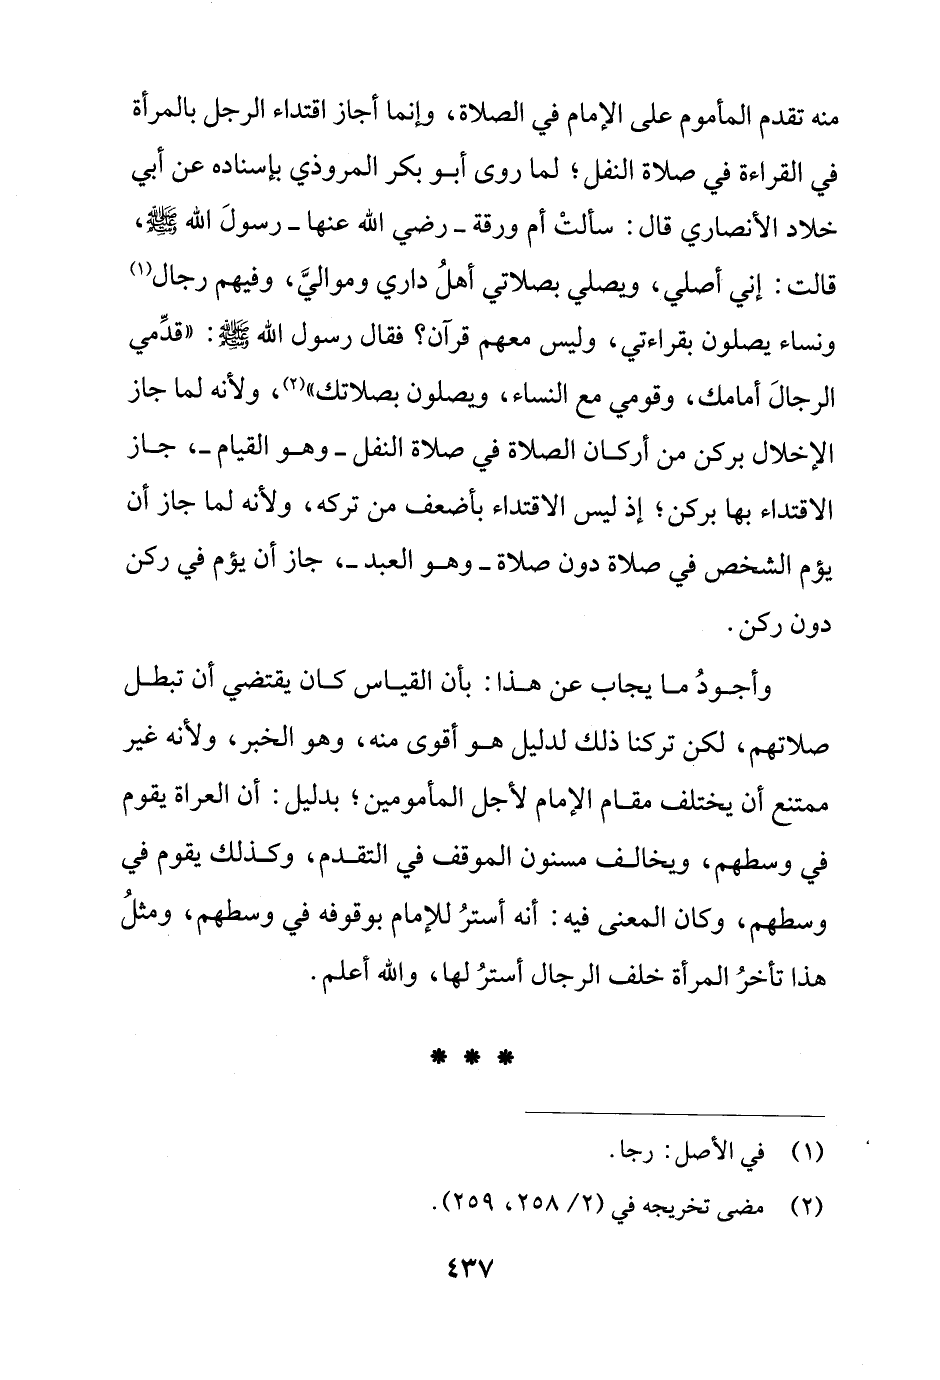 منه تقدم المأموم على الإمام في الصلاة، وإنما أجاز اقتداء الرجل بالمرأة
في القراءة في صلاة النفل؛ لما روى أبـو بكر المروذي بإسناده عن أبي
خلاد الأنصاري قال: سألتْ أم ورقة ـ رضي الله عنها ـ رسولَ الله ﷺ،
قالت: إني أصلي، ويصلي بصلاتي أهلُ داري ومواليَّ، وفيهم رجال(١)
ونساء يصلون بقراءتي، وليس معهم قرآن؟ فقال رسول الله ﷺ: «قدِّمي
الرجالَ أمامك، وقومي مع النساء، ويصلون بصلاتك»(٢)، ولأنه لما جاز
الإخلال بركن من أركـان الصلاة في صلاة النفل ـ وهـو القيام ـ، جـاز
الاقتداء بها بركن؛ إذ ليس الاقتداء بأضعف من تركه، ولأنه لما جاز أن
يؤم الشخص في صلاة دون صلاة ـ وهـو العبد ـ، جاز أن يؤم في ركن
دون ركن.
وأجـودُ مـا يجاب عن هـذا: بأن القيـاس كـان يقتضي أن تبطـل
صلاتهم، لكن تركنا ذلك لدليل هـو أقوى منه، وهو الخبر، ولأنه غير
ممتنع أن يختلف مقـام الإمام لأجل المأمومين؛ بدليل: أن العراة يقوم
في وسطهم، ويخالـف مسنون الموقف في التقـدم، وكـذلك يقوم في
وسطهم، وكان المعنى فيه: أنه أسترُ للإمام بوقوفه في وسطهم، ومثلُ
هذا تأخرُ المرأة خلف الرجال أسترُ لها، والله أعلم.
* * *
(١) في الأصل: رجا.
(٢) مضى تخريجه في (٢/ ٢٥٨، ٢٥٩).
٤٣٧